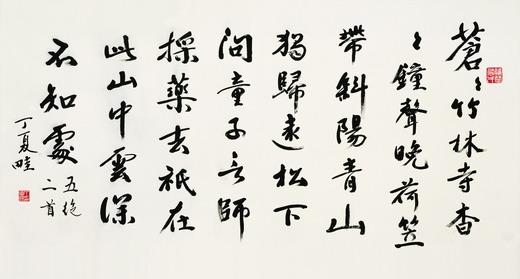 蒼〻竹林寺杳
〻鐘聲晚荷笠
帶斜陽青山
獨歸遠松下
問童子言師
採藥去祇在
此山中雲深
不知處
五絕
二首
丁夏畦